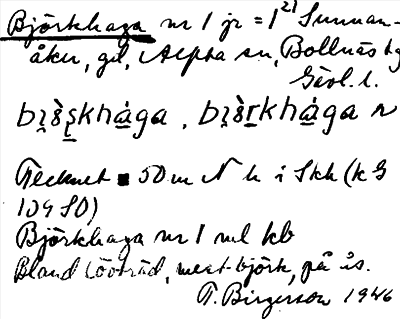 Björkhaga nr 1 jr = 1²¹ Sunnan-
åker, gd, Alfta sn, Bollnäs tg
Gävl. l.
Tecknet 50 m N h i Skh (k G
109 SO)
Björkhaga nr 1 ml kb
Bland lövträd, mest björk, på ås.
T. Birgersson 1946